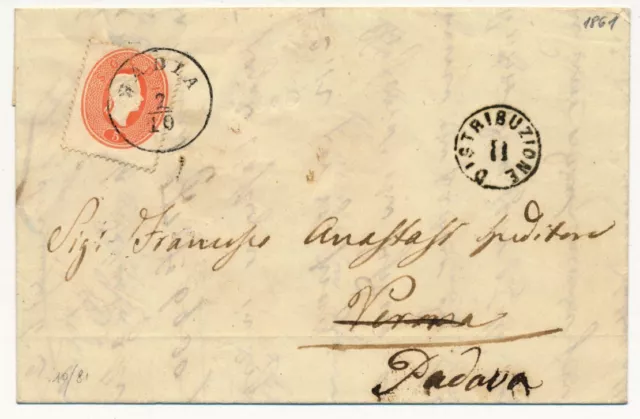 1861
2
10
DISTRIBUZIONE
II
Sigr Francesco Anastasi speditore
Verona
Padova